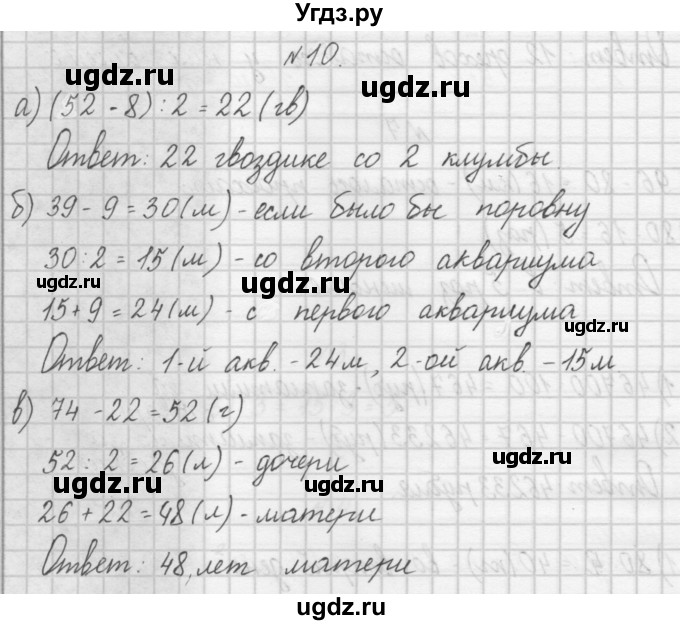 Угдз.ру
№10.
а) (52 - 8) : 2 = 22 (гв)
Ответ: 22 гвоздике со 2 клумбы
б) 39 - 9 = 30 (м) - если было бы поровну
30 : 2 = 15 (м) - со второго аквариума
15 + 9 = 24 (м) - с первого аквариума
Ответ: 1-й акв. - 24 м, 2-ой акв. - 15 м
в) 74 - 22 = 52 (г)
52 : 2 = 26 (л) - дочери
26 + 22 = 48 (л) - матери
Ответ: 48, лет матери
ugdz.ru
ugdz.ru
ugdz.ru
ugdz.ru
ugdz.ru
ugdz.ru
ugdz.ru
ugdz.ru
ugdz.ru